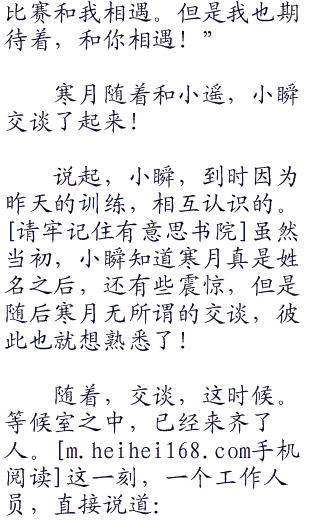 比赛和我相遇。但是我也期
待着，和你相遇！”
寒月随着和小遥，小瞬
交谈了起来！
说起，小瞬，到时因为
昨天的训练，相互认识的。
[请牢记住有意思书院]虽然
当初，小瞬知道寒月真是姓
名之后，还有些震惊，但是
随后寒月无所谓的交谈，彼
此也就想熟悉了！
随着，交谈，这时候。
等候室之中，已经来齐了
人。[m.heihei168.com手机
阅读]这一刻，一个工作人
员，直接说道：